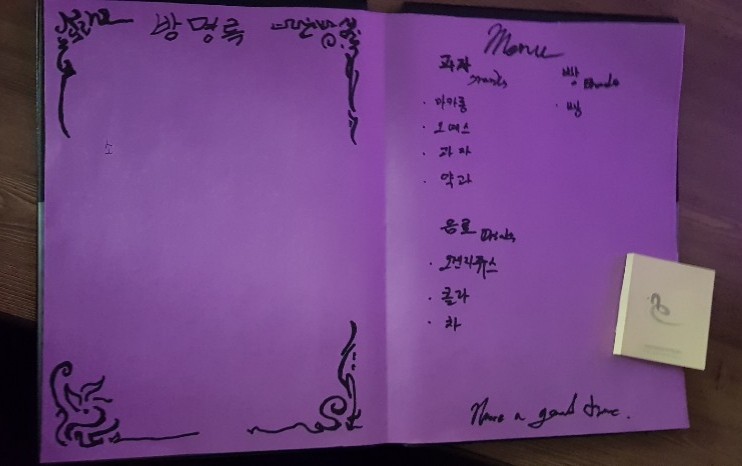 방명록
Menu
과자 snacks
· 마카롱
· 오예스
· 과자
· 약과
빵 Breads
· 빵
음료 Drinks
· 오렌지쥬스
· 콜라
· 차
Have a good time.